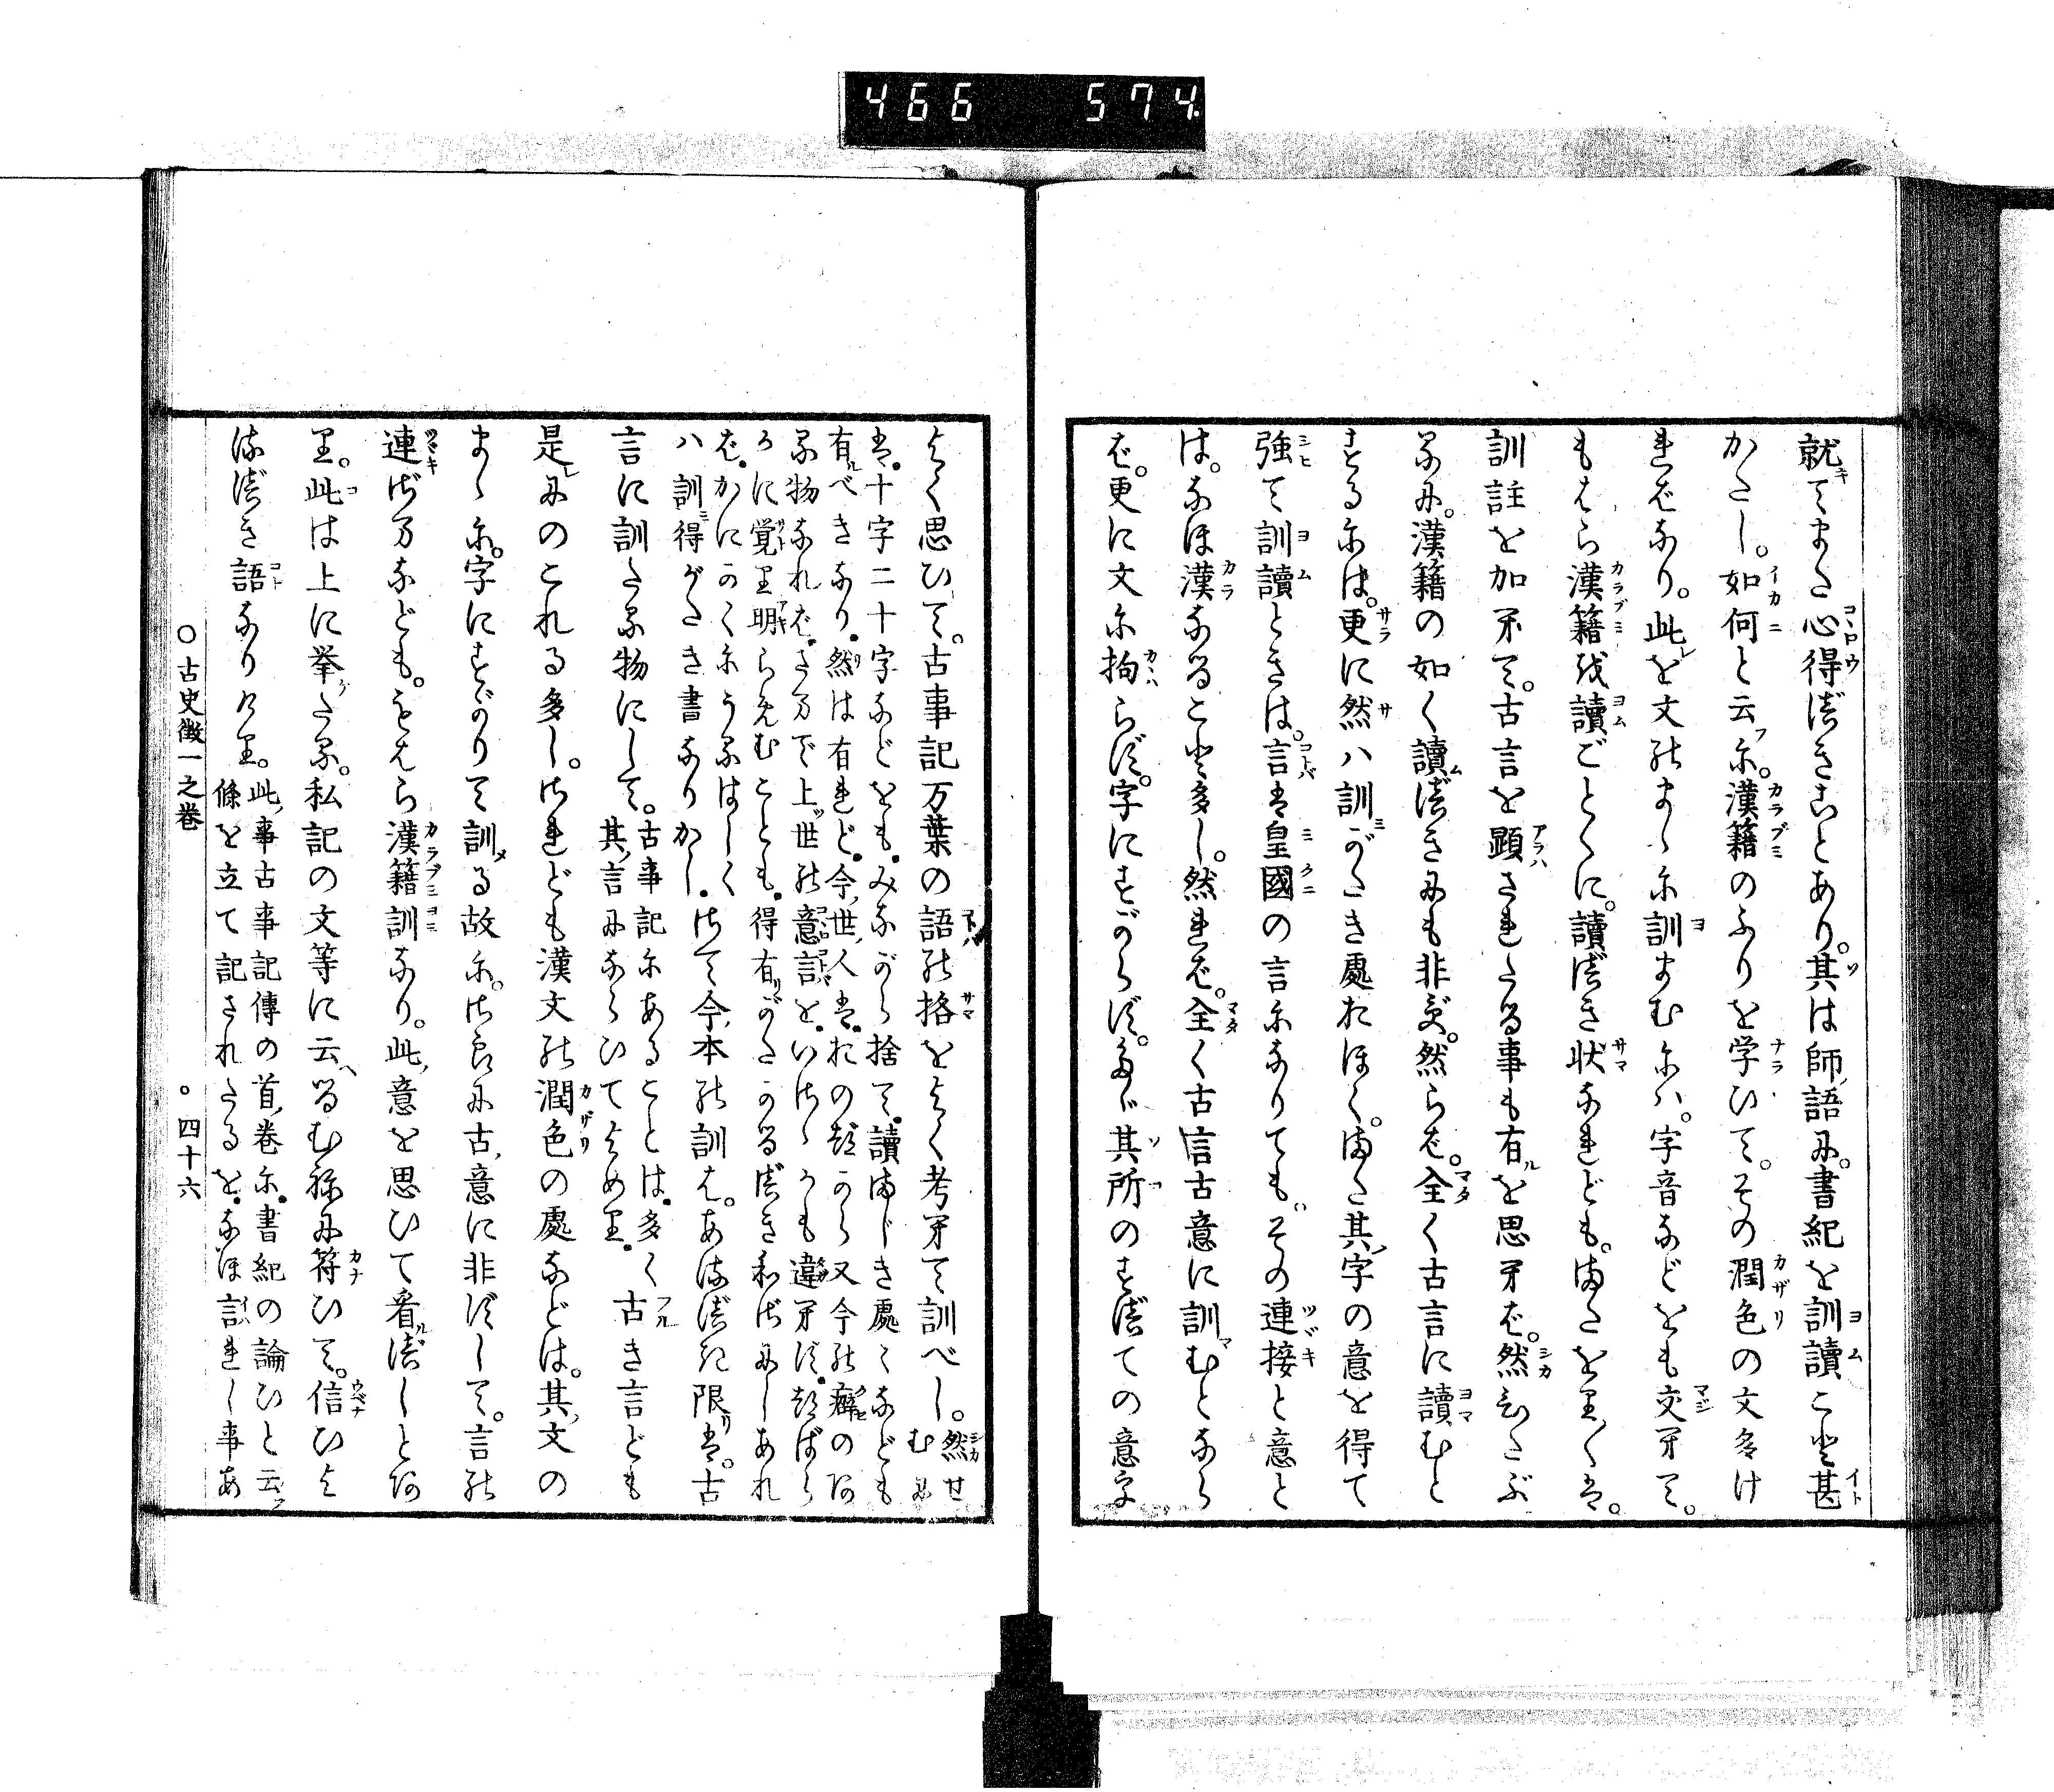 466 574.
就てまた心得べきことあり。其は師ノ語に。書紀を訓讀こと甚
かたし。如何と云に。漢籍のふりを学ひて。その潤色の文多け
ればなり。此を文のまゝに訓まむにハ。字音などをも交へて。
もはら漢籍を讀ごとくに。讀べき状なれども。またをり〳〵は。
訓註を加へて。古言を顕されたる事も有を思へば。然ひたぶ
るに。漢籍の如く讀べきにも非ず。然らば。全く古言に讀むと
するには。更に然ハ訓がたき處おほく。また其ノ字の意を得て
強て訓讀ときは。言は皇國の言になりても。その連接と意と
は。なほ漢なること多し。然れば。全く古言古意に訓むとなら
ば。更に文に拘らず。字にすがらず。たゞ其所のすべての意を
よく思ひて。古事記万葉の語の格をよく考へて訓べし。然せむに
は。十字二十字などをも。みながら捨て。讀まじき處々なども
有べきなり。然は有れど。今ノ世ノ人は。おの
る物なれば。さまで上ツ世の意言を。いさゝかも違へず。
かに覚り明らめむことも。得有がたかるべきわざにしあれ
ば。かにかくにうるはしく
ハ訓得がたき書なりかし。さて今ノ本の訓は。あるべき限は。古
言に訓たる物にして。古事記にあることは。多く
其ノ言にならひてよめり。古き言ども
是にのこれる多し。されども漢文の潤色の處などは。其ノ文の
まゝに。字にすがりて訓る故に。さらに古ノ意に非ずして。言の
連ざまなども。もはら漢籍訓なり。此ノ意を思ひて看べしとあ
り。此は上に挙たる。私記の文等に云へるむねに符ひて。信ひよ
るべき語なりけり。此ノ事古事記傳の首ノ巻に。書紀の論ひと云フ
條を立て記されたるを。なほ言れし事あ
○古史徴一之巻
○四十六